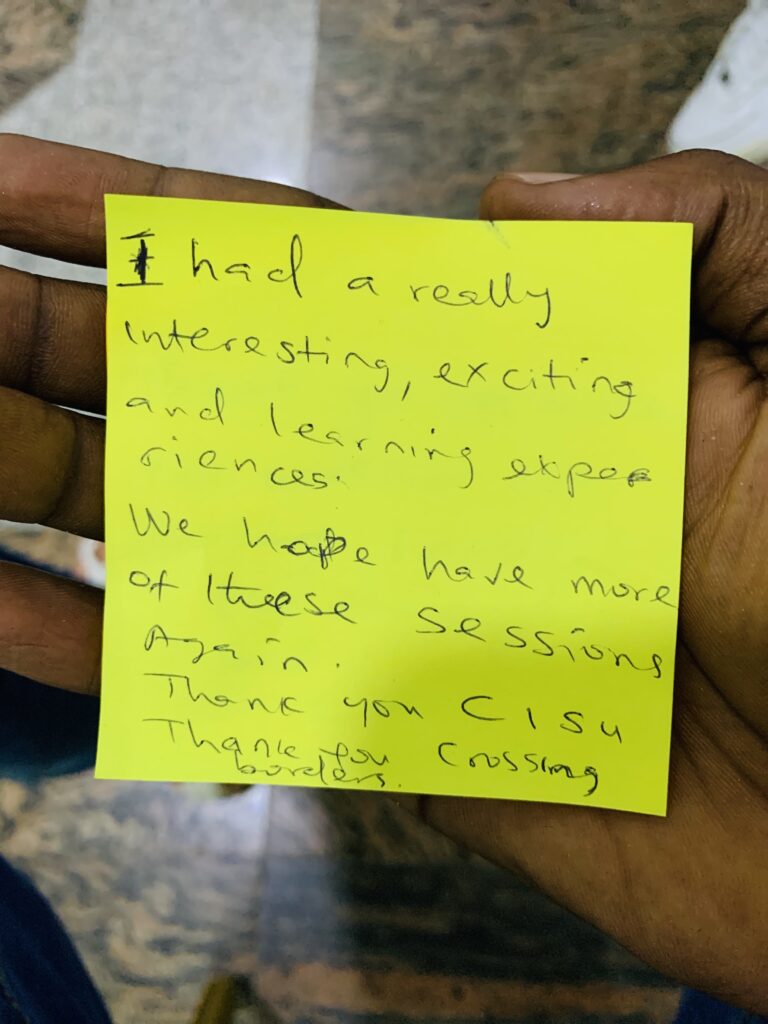 I had a really
interesting, exciting
and learning expe
riences.
We hope have more
of these sessions
Again.
Thank you CISU
Thank you Crossing
borders.